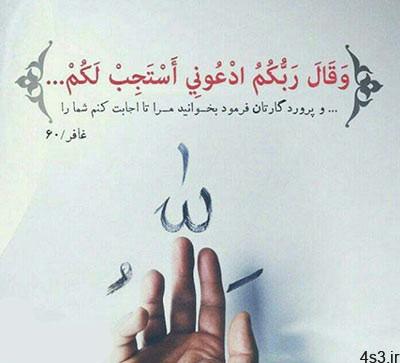 وَقَالَ رَبُّكُمُ ادْعُونِي أَسْتَجِبْ لَكُمْ...
... و پروردگارتان فرمود بخـوانید مـرا تا اجابت کنم شما را
غافر/۶۰
الله
4s3.ir